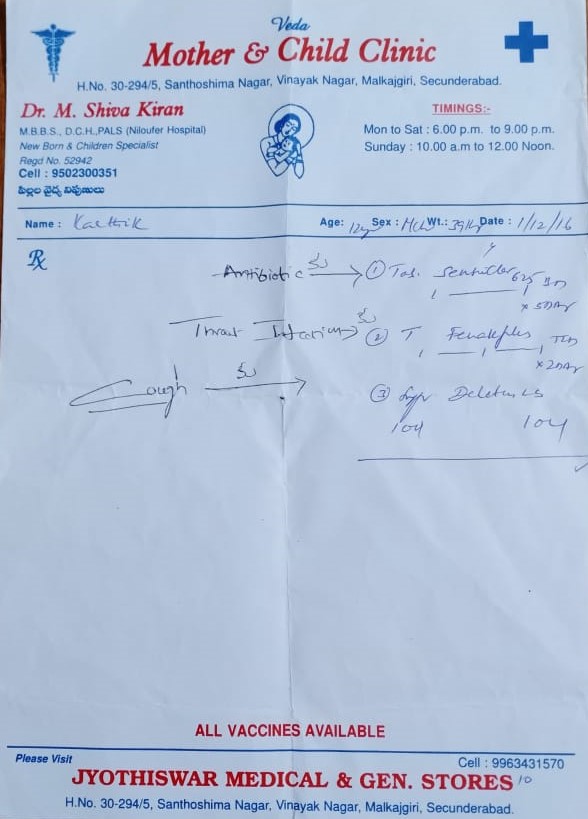 Veda
Mother & Child Clinic
H.No. 30-294/5, Santhoshima Nagar, Vinayak Nagar, Malkajgiri, Secunderabad.
Dr. M. Shiva Kiran
M.B.B.S., D.C.H.,PALS (Niloufer Hospital)
New Born & Children Specialist
Regd No. 52942
Cell : 9502300351
పిల్లల వైద్య నిపుణులు
TIMINGS:-
Mon to Sat : 6.00 p.m. to 9.00 p.m.
Sunday : 10.00 a.m to 12.00 Noon.
Name : Karthik Age: 12y Sex : Mch Wt.: 39Kg Date : 1/12/16
Rx
Antibiotic కు → ① Tab. 625 BD
1 1
x 5DAY
Throat కు → ② T. TID
1 1 1
x 2DAY
Cough కు → ③ Syr
104 104
ALL VACCINES AVAILABLE
Please Visit
Cell : 9963431570
JYOTHISWAR MEDICAL & GEN. STORES 10
H.No. 30-294/5, Santhoshima Nagar, Vinayak Nagar, Malkajgiri, Secunderabad.